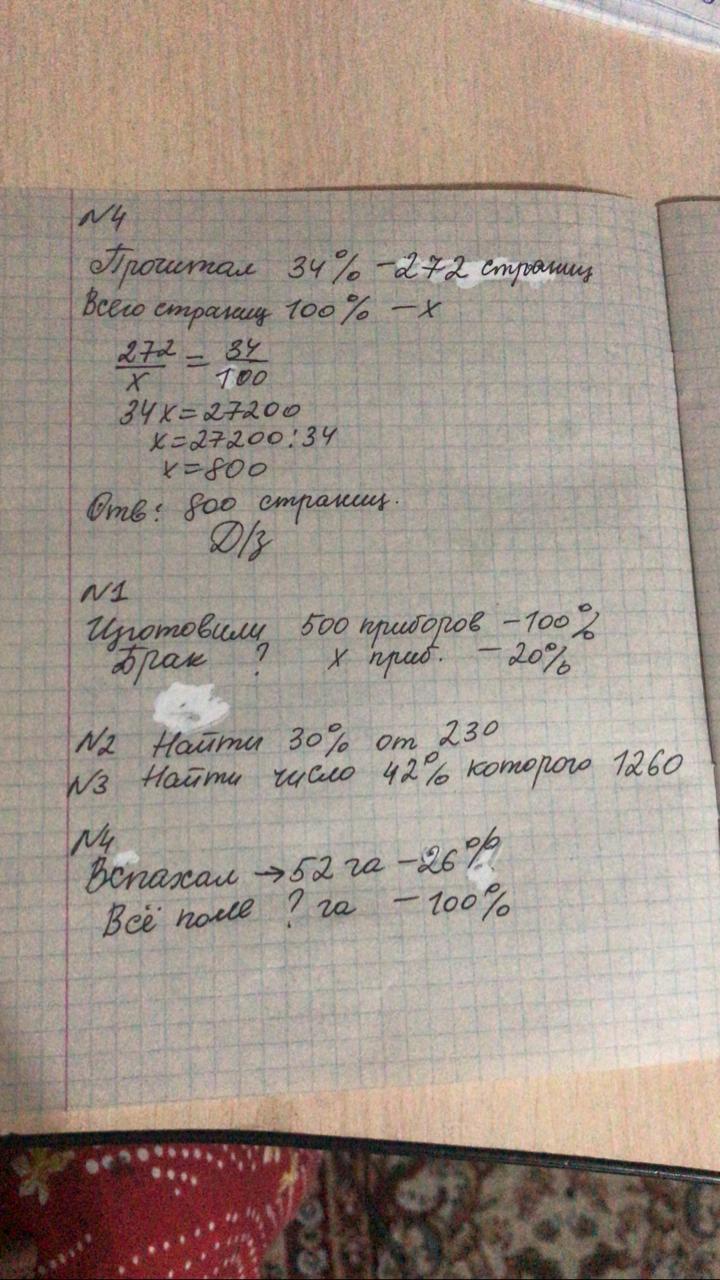 №4
Прочитал 34% - 272 страниц
Всего страниц 100% - x
272/x = 34/100
34x=27200
x=27200:34
x=800
Отв: 800 страниц.
Д/з
№1
Изготовили 500 приборов - 100%
Брак ? x приб. - 20%
№2 Найти 30% от 230
№3 Найти число 42% которого 1260
№4
Вспахал → 52 га - 26%
Всё поле ? га - 100%